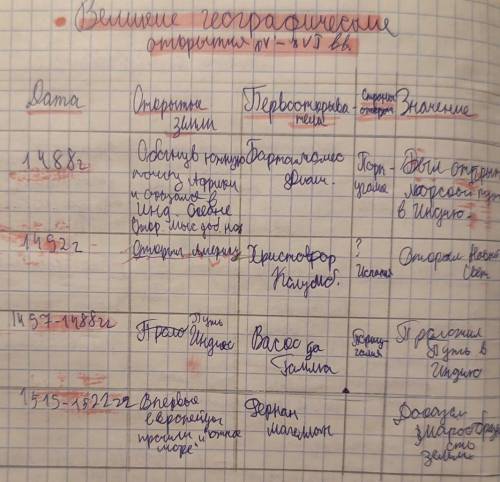 Великие географические
открытия XV - XVI вв.
Дата Открытые земли Первооткрыватели Страны Значение
1488г Обогнув южную Бартоломео Порт- Был открыт
точку Африки Диаш. угалия морской путь
и оказался в в Индию.
Инд. океане
1492г Открыл Америку Христофор ? Открыл Новый
Колумб. Испания Свет.
1497-1488гг Путь Васко да Порту- Проложил
Индию Гамма галия Путь в
Индию
1515-1522гг Впервые Фернан Доказал
европейцы магеллан шарообразно
прошли "южное сть
море" земли